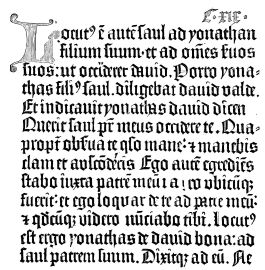 C. XIX.
Locutꝰ ē autē saul ad yonathan
filium suum· et ad om̄es s̾uos
suos: ut occideret david. Porro yona-
thas filiꝰ saul· diligebat david valde.
Et indicavit yonathas david dicēs
Querit saul pr̄ meus occidere te. Qua-
propt̾ obs̾va te q̄so mane: ⁊ manebis
clam et abscōderis Ego autē egrediēs
stabo iuxta patrē meū ī a co ubicūq̨
fuerit: et ego loquar de te ad patrē meū:
⁊ qd̄cūq̨ videro nūciabo tibi. Locutꝰ
est ergo yonathas de david bona: ad
saul patrem suum. Dixitq̨ ad eū. Ne